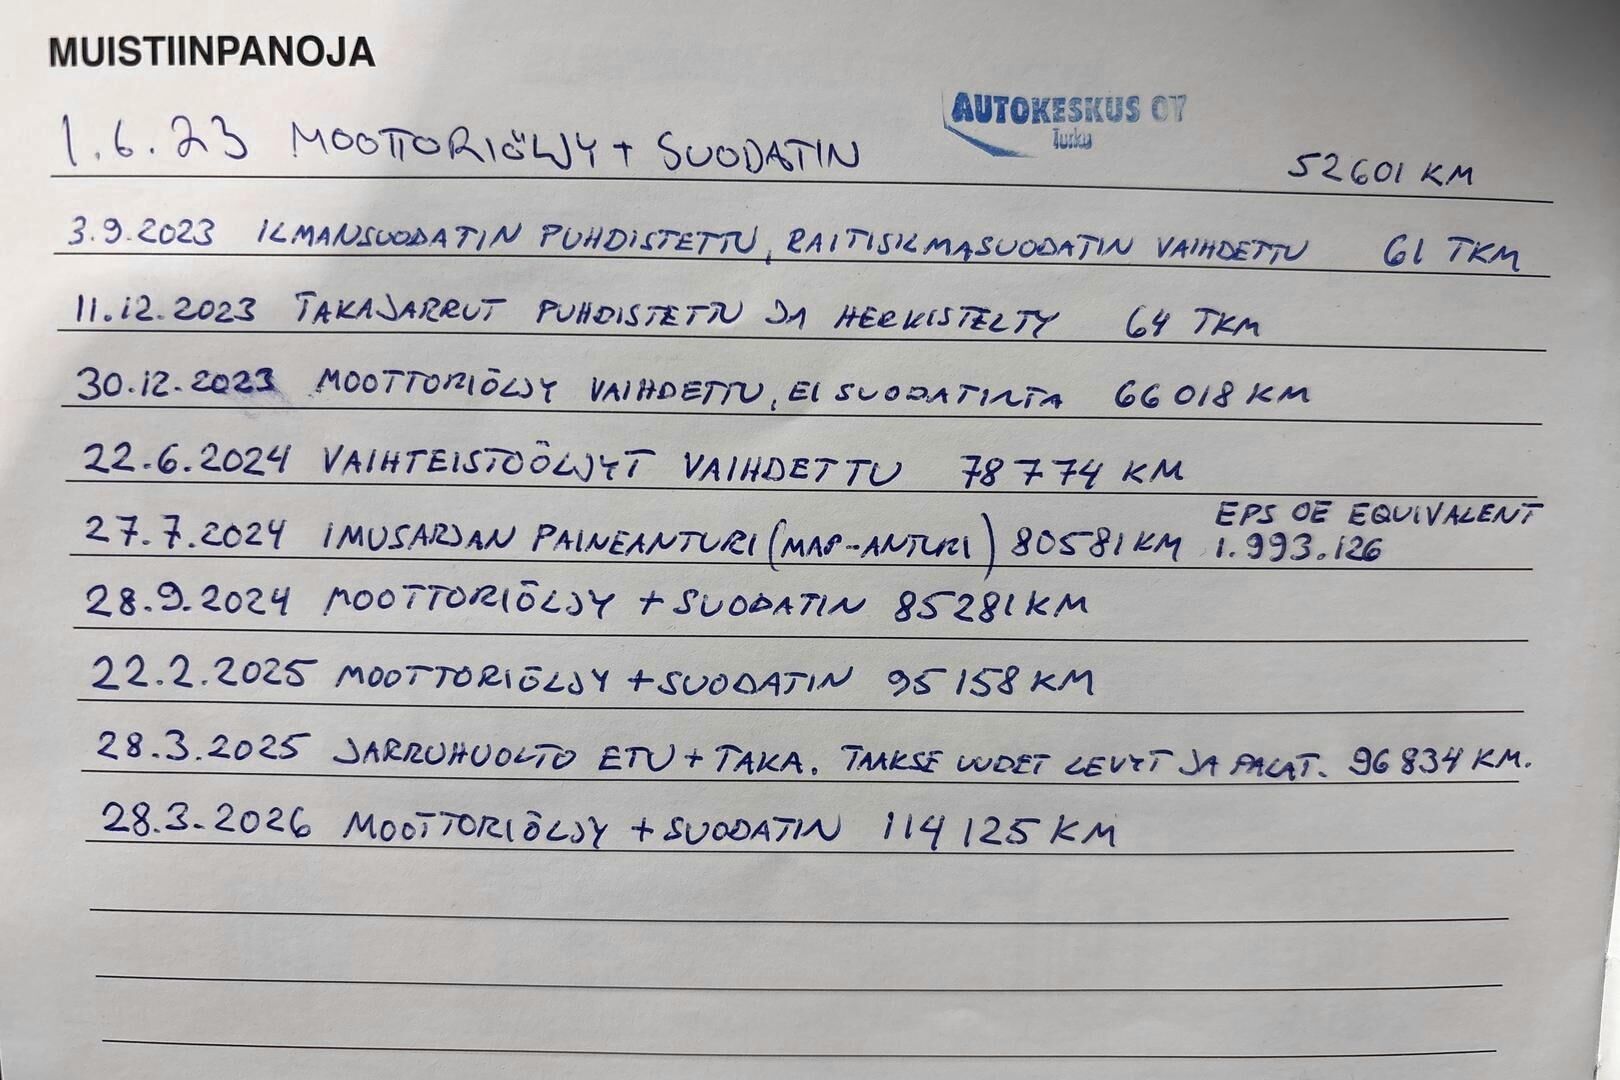 MUISTIINPANOJA
AUTOKESKUS OY
Turku
1.6.23 MOOTTORIÖLJY + SUODATIN 52601 KM
3.9.2023 ILMANSUODATIN PUHDISTETTU, RAITISILMASUODATIN VAIHDETTU 61 TKM
11.12.2023 TAKAJARRUT PUHDISTETTU JA HERKISTELTY 64 TKM
30.12.2023 MOOTTORIÖLJY VAIHDETTU, EI SUODATINTA 66018 KM
22.6.2024 VAIHTEISTOÖLJYT VAIHDETTU 78774 KM
27.7.2024 IMUSARJAN PAINEANTURI (MAP-ANTURI) 80581 KM EPS OE EQUIVALENT
1.993.126
28.9.2024 MOOTTORIÖLJY + SUODATIN 85281 KM
22.2.2025 MOOTTORIÖLJY + SUODATIN 95158 KM
28.3.2025 JARRUHUOLTO ETU + TAKA. TAAKSE UUDET LEVYT JA PALAT. 96834 KM.
28.3.2026 MOOTTORIÖLJY + SUODATIN 114125 KM